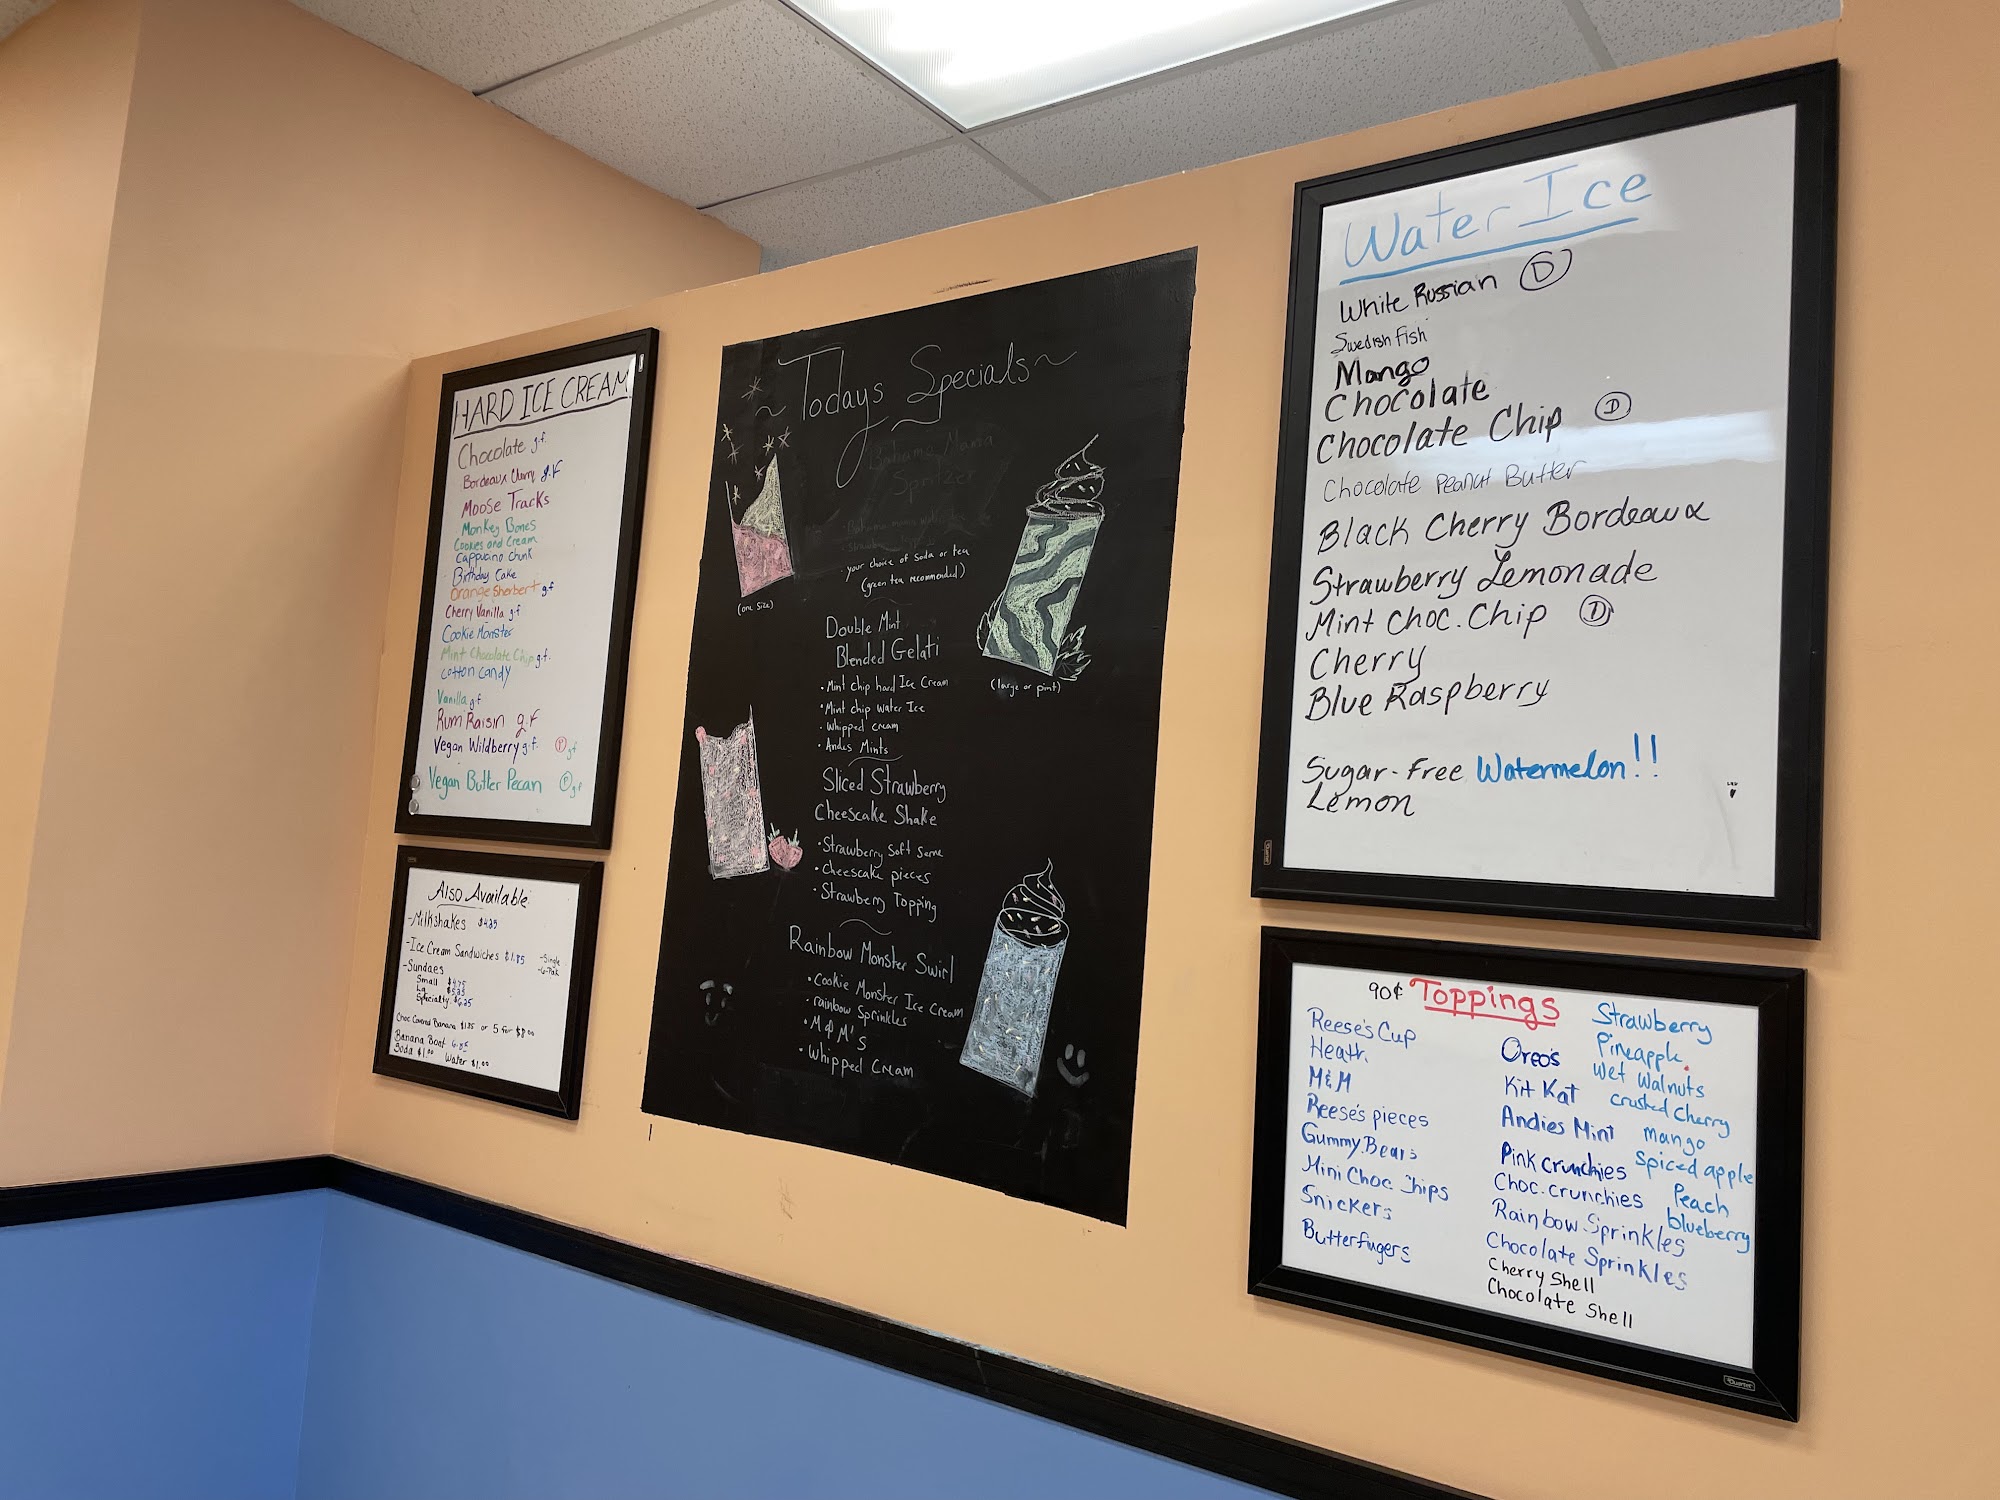 HARD ICE CREAM
Chocolate g.f.
Bordeaux Cherry g.f
Moose Tracks
Monkey Bones
Cookies and Cream
Cappucino Chunk
Birthday Cake
Orange Sherbert g.f
Cherry Vanilla g.f
Cookie Monster
Mint Chocolate Chip g.f.
Cotton Candy
Vanilla g.f
Rum Raisin g.f
Vegan Wildberry g.f. P g.f
Vegan Butter Pecan P g.f
Also Available
-Milkshakes $4.25
-Ice Cream Sandwiches $1.85 -Single
-6-Pak
-Sundaes
Small $4.75
Lg $5.25
Specialty $6.25
Choc Covered Banana $1.25 or 5 for $8.00
Banana Boat
Soda $1.00 Water $1.00
~Todays Specials~
Bahama Mama
Spritzer
· your choice of soda or tea
(green tea recommended)
(one size)
Double Mint
Blended Gelati
· Mint Chip hard Ice Cream
· Mint chip Water Ice
· Whipped cream
· Andes Mints
(large or pint)
Sliced Strawberry
Cheescake Shake
· Strawberry Soft Serve
· Cheescake pieces
· Strawberry Topping
Rainbow Monster Swirl
· Cookie Monster Ice Cream
· rainbow Sprinkles
· M & M's
· Whipped Cream
Water Ice
White Russian D
Swedish Fish
Mango
Chocolate
Chocolate Chip D
Chocolate Peanut Butter
Black Cherry Bordeaux
Strawberry Lemonade
Mint Choc. Chip D
Cherry
Blue Raspberry
Sugar-Free Watermelon!!
Lemon
90¢ Toppings
Reese's Cup
Heath
M&M
Reese's pieces
Gummy Bears
Mini Choc. Chips
Snickers
Butterfingers
Oreo's
Kit Kat
Andies Mint
Pink crunchies
Choc. crunchies
Rainbow Sprinkles
Chocolate Sprinkles
Cherry Shell
Chocolate Shell
Strawberry
Pineapple
Wet Walnuts
crushed Cherry
mango
Spiced apple
Peach
blueberry
Quartet